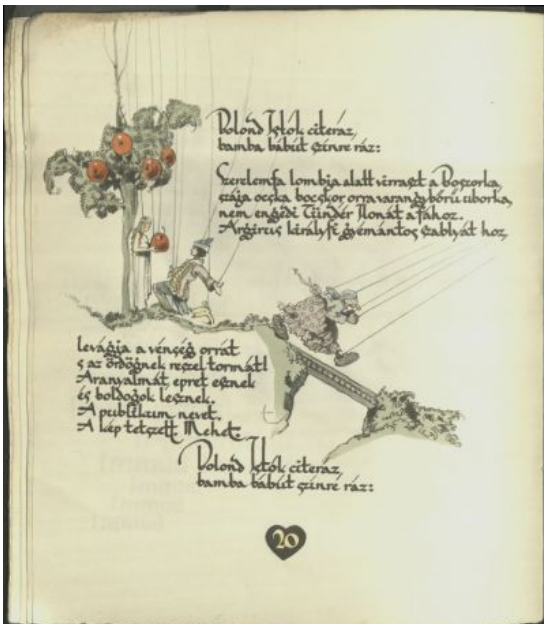 Bolond Istók citeráz,
bamba bábút színre ráz:
Szerelemfa lombja alatt virraszt a Boszorka,
szája ócska bocskor orra varangybőrű uborka,
nem engedi Tündér Ilonát a fához.
Argirus királyfi gyémántos szablyát hoz,
levágja a vénség orrát
s az ördögnek reszel tormát!
Aranyalmát, epret esznek
és boldogok lesznek.
A publikum nevet.
A kép tetszett. Mehet.
Bolond Istók citeráz,
bamba bábút színre ráz:
20